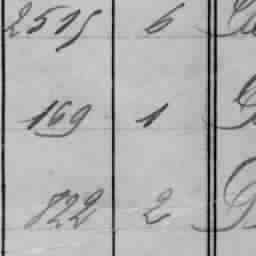 2515 6
169 1
822 2